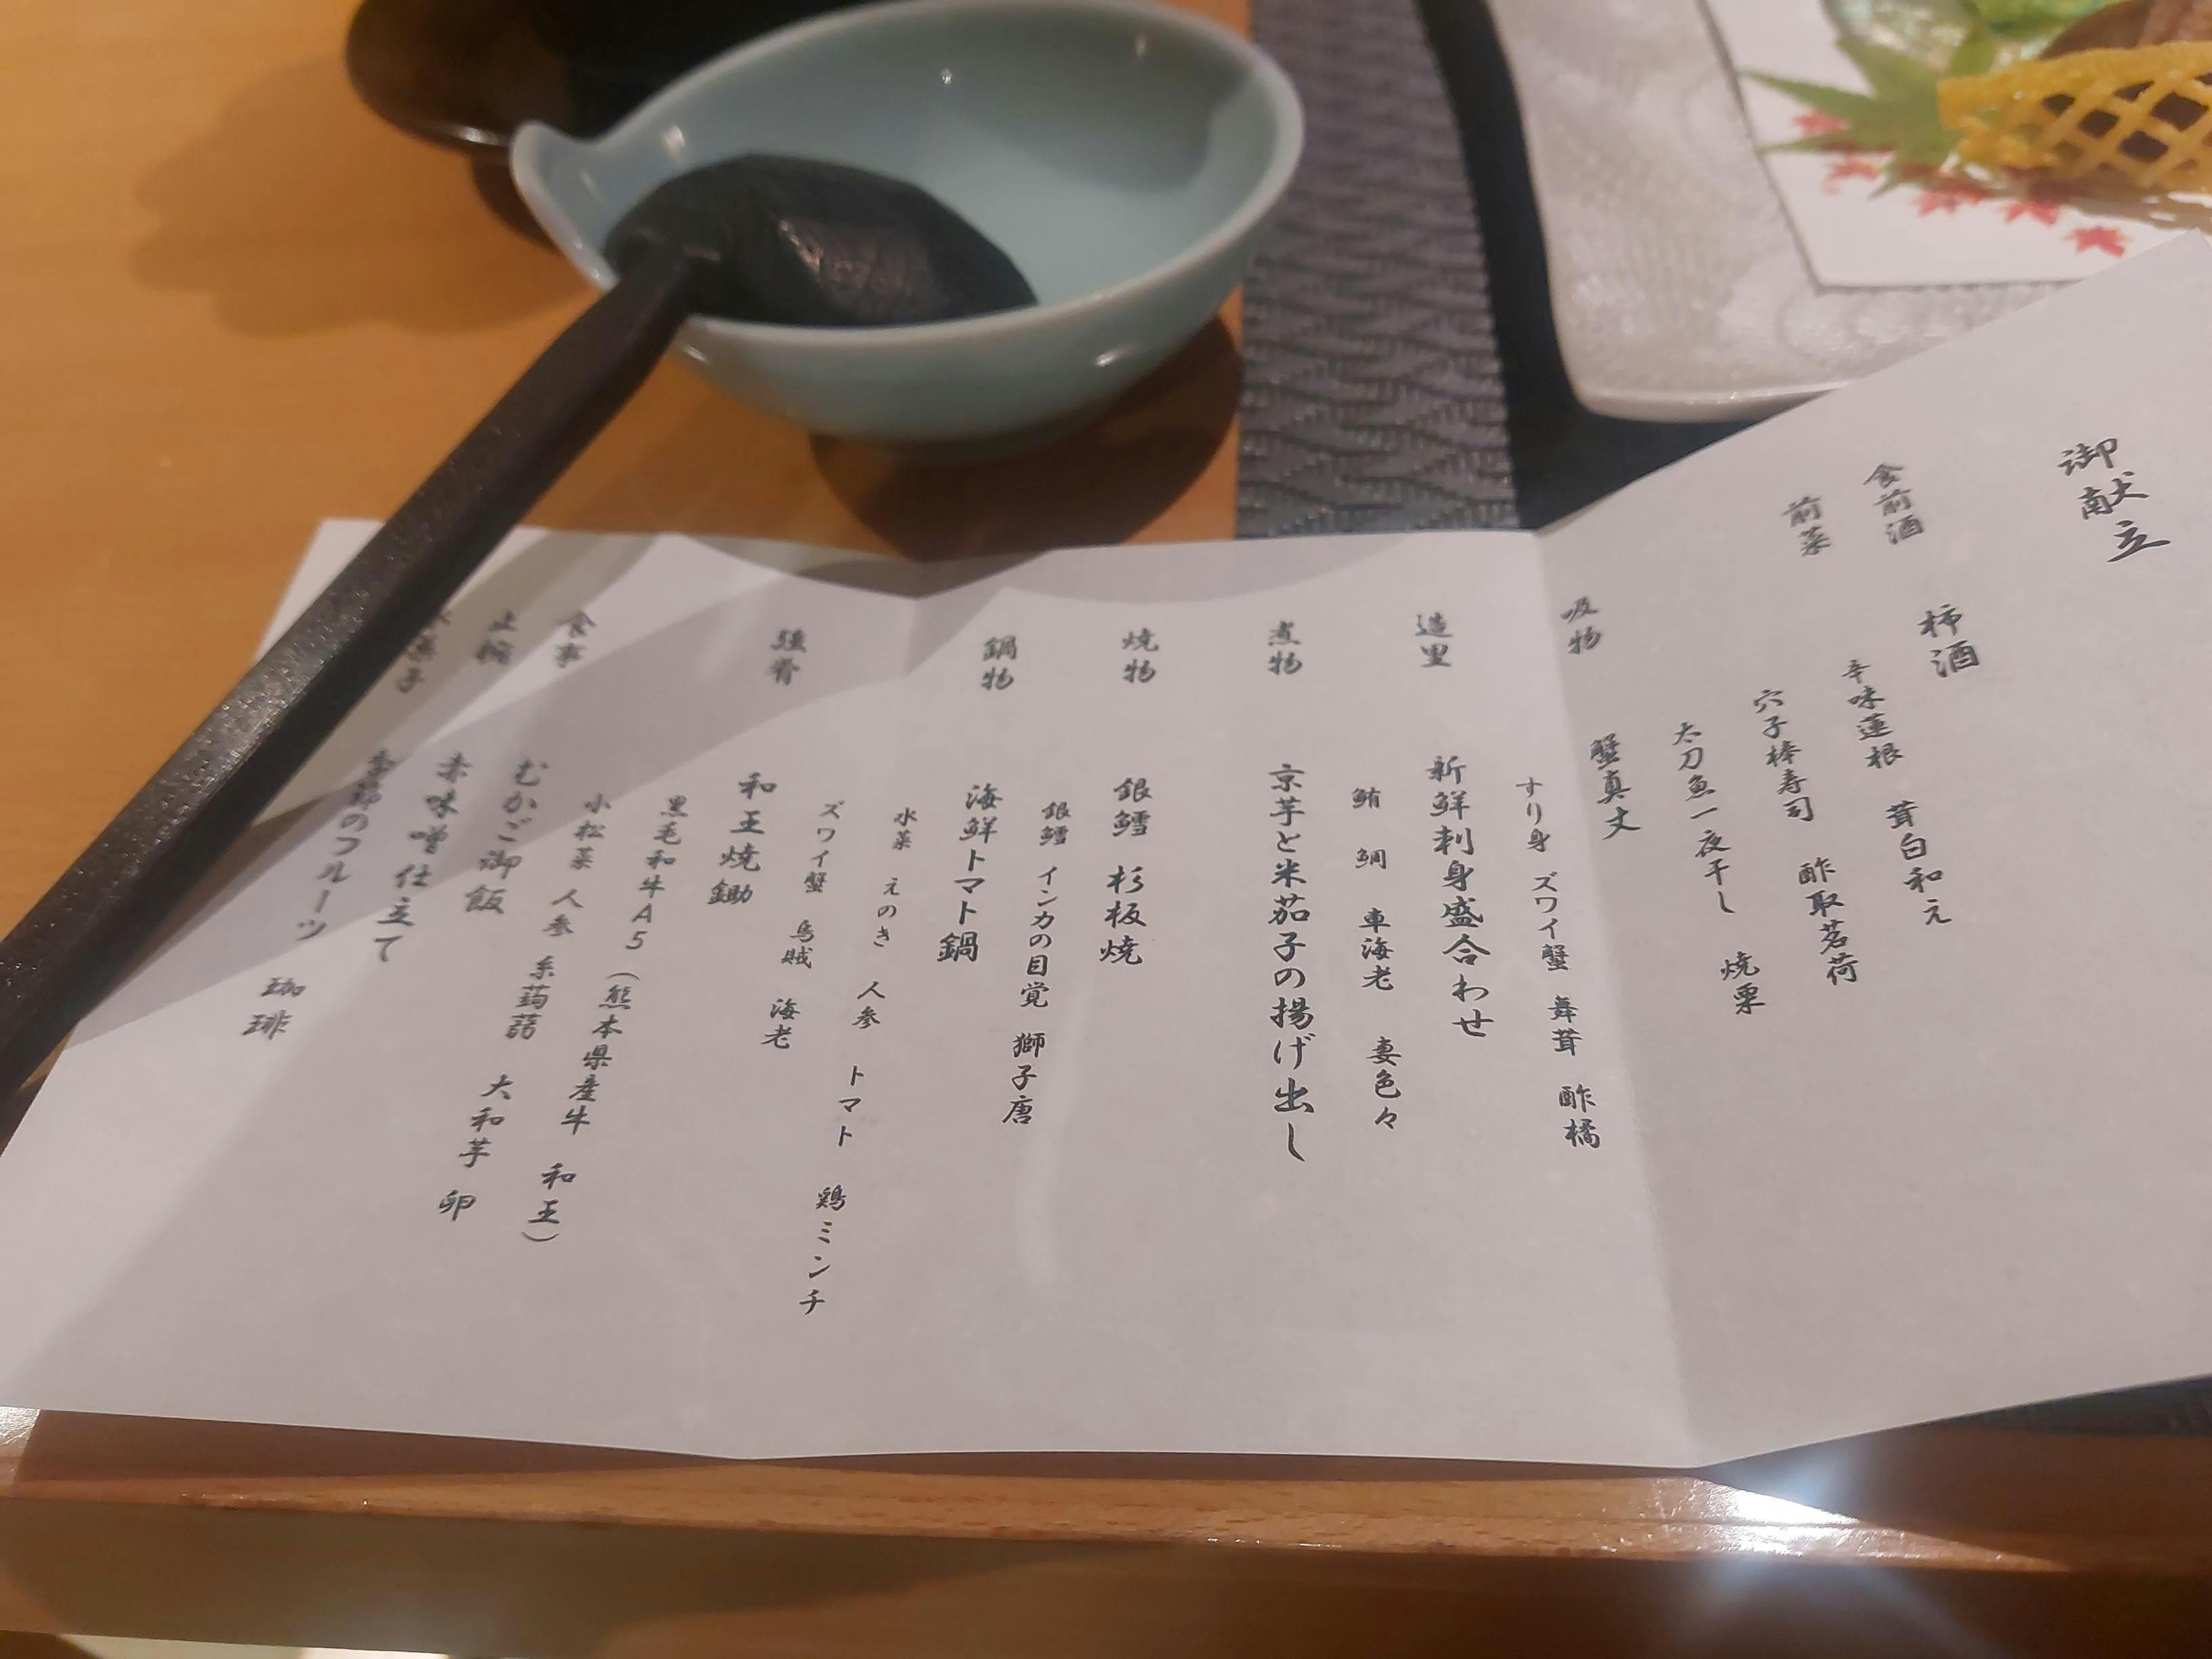 御献立
食前酒 柿酒
前菜 辛味蓮根 茸白和え
穴子棒寿司 酢取茗荷
太刀魚一夜干し 焼栗
吸物 蟹真丈
すり身 ズワイ蟹 舞茸 酢橘
造里 新鮮刺身盛合わせ
鮪 鯛 車海老 妻色々
煮物 京芋と米茄子の揚げ出し
焼物 銀鱈 杉板焼
銀鱈 インカの目覚 獅子唐
鍋物 海鮮トマト鍋
水菜 えのき 人参 トマト 鶏ミンチ
ズワイ蟹 烏賊 海老
強肴 和王焼鋤
黒毛和牛A5(熊本県産牛 和王)
小松菜 人参 糸蒟蒻 大和芋 卵
食事 むかご御飯
止椀 赤味噌仕立て
菓子 季節のフルーツ 珈琲